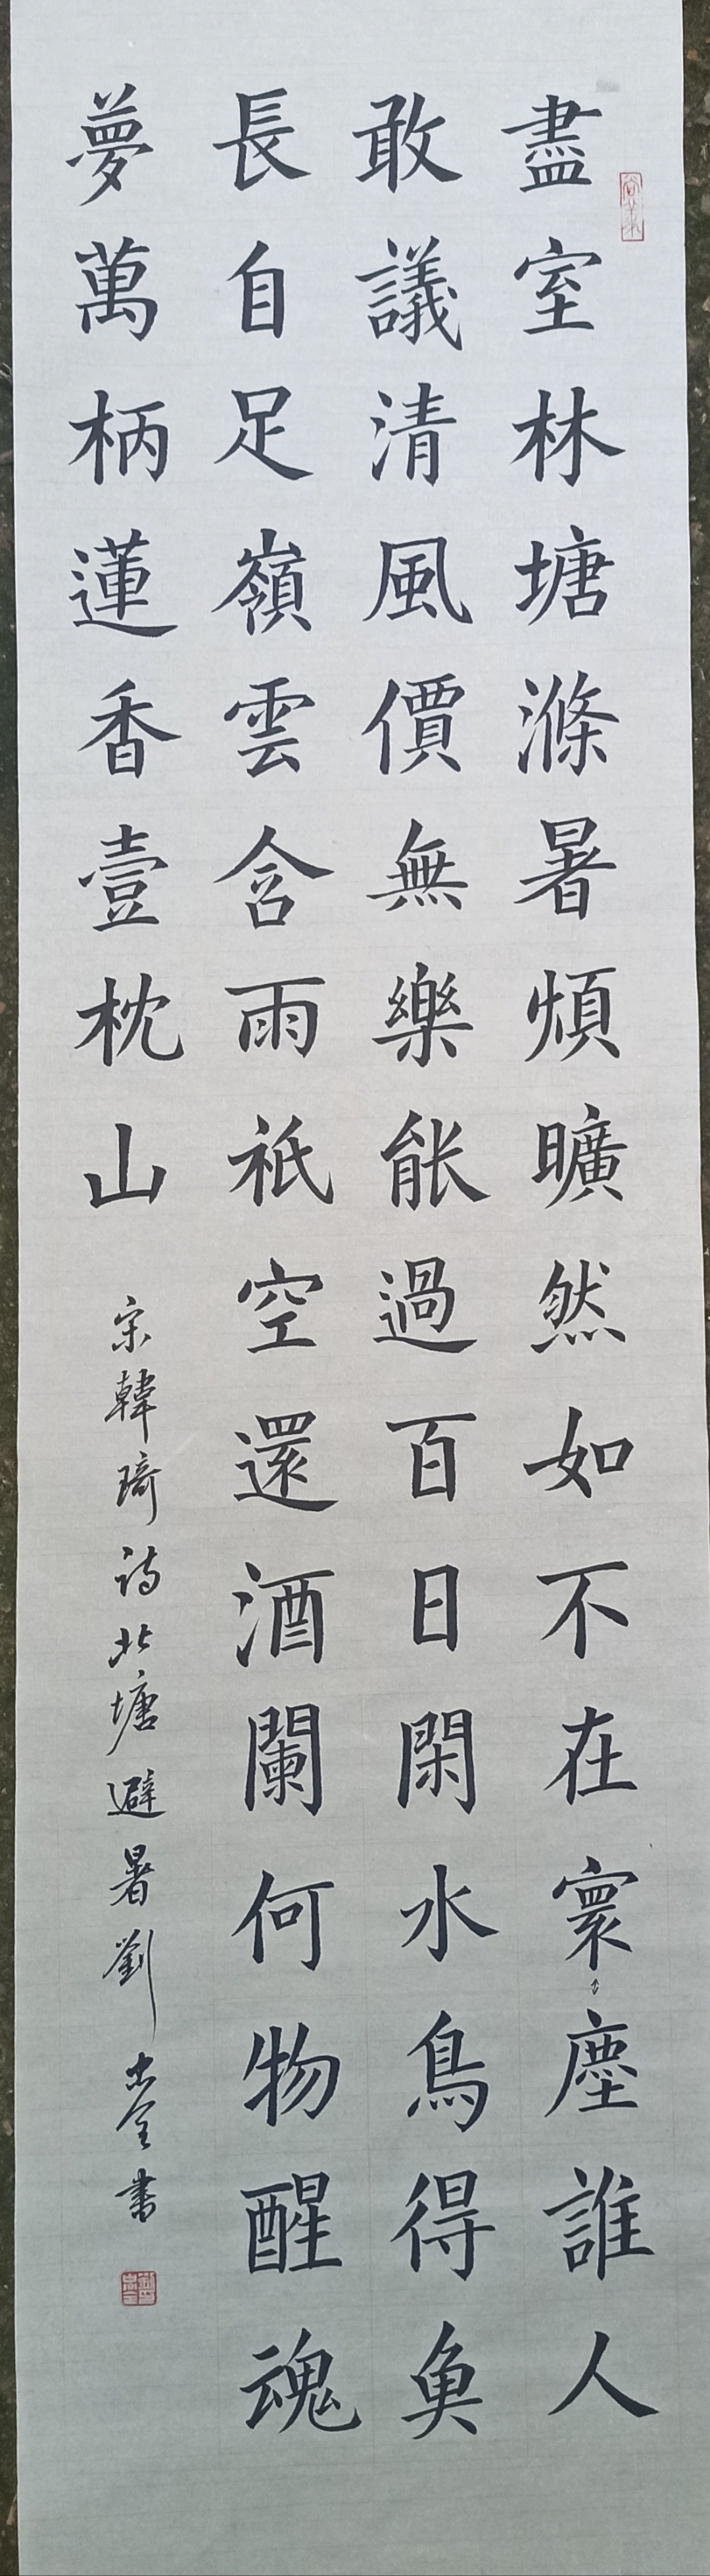 盡室林塘滌暑煩曠然如不在寰塵誰人
敢議清風價無樂能過百日閑水鳥得魚
長自足嶺雲含雨祇空還酒闌何物醒魂
夢萬柄蓮香壹枕山
宋韓琦詩北塘避暑劉忠全書